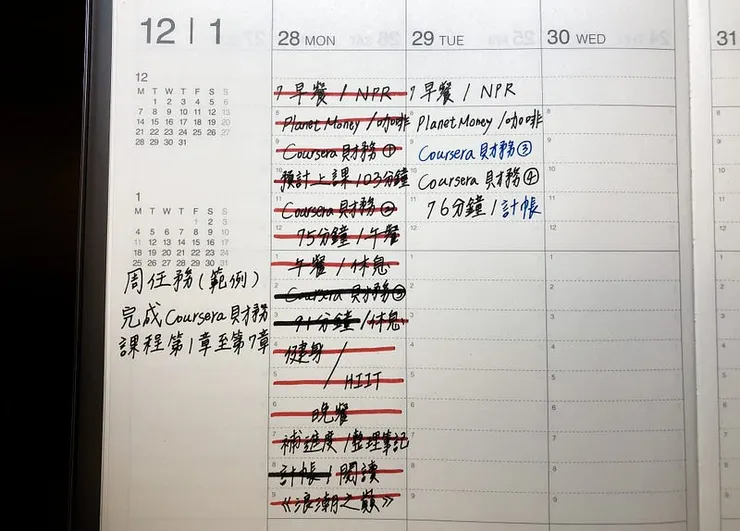 12 | 1
28 MON
29 TUE
30 WED
31
12
M T W T F S S
1 2 3 4 5 6
7 8 9 10 11 12 13
14 15 16 17 18 19 20
21 22 23 24 25 26 27
28 29 30 31
1
M T W T F S S
1 2 3
4 5 6 7 8 9 10
11 12 13 14 15 16 17
18 19 20 21 22 23 24
25 26 27 28 29 30 31
周任務(範例)
完成Coursera財務
課程第1章至第7章
7 早餐 / NPR
8 Planet Money / 咖啡
9 Coursera 財務①
10 預計上課103分鐘
11 Coursera 財務②
12 75分鐘 / 午餐
1 午餐 / 休息
2 Coursera 財務③
3 91分鐘 / 休息
4 健身 /
5 / HIIT
6 晚餐
7 補進度 / 整理筆記
8 計帳 / 閱讀
9 《浪潮之巔》
7 早餐 / NPR
8 Planet Money / 咖啡
9 Coursera 財務③
10 Coursera 財務④
11 76分鐘 / 計帳
12
1
2
3
4
5
6
7
8
9
8
9
10
11
12
1
2
3
4
5
6
7
8
9